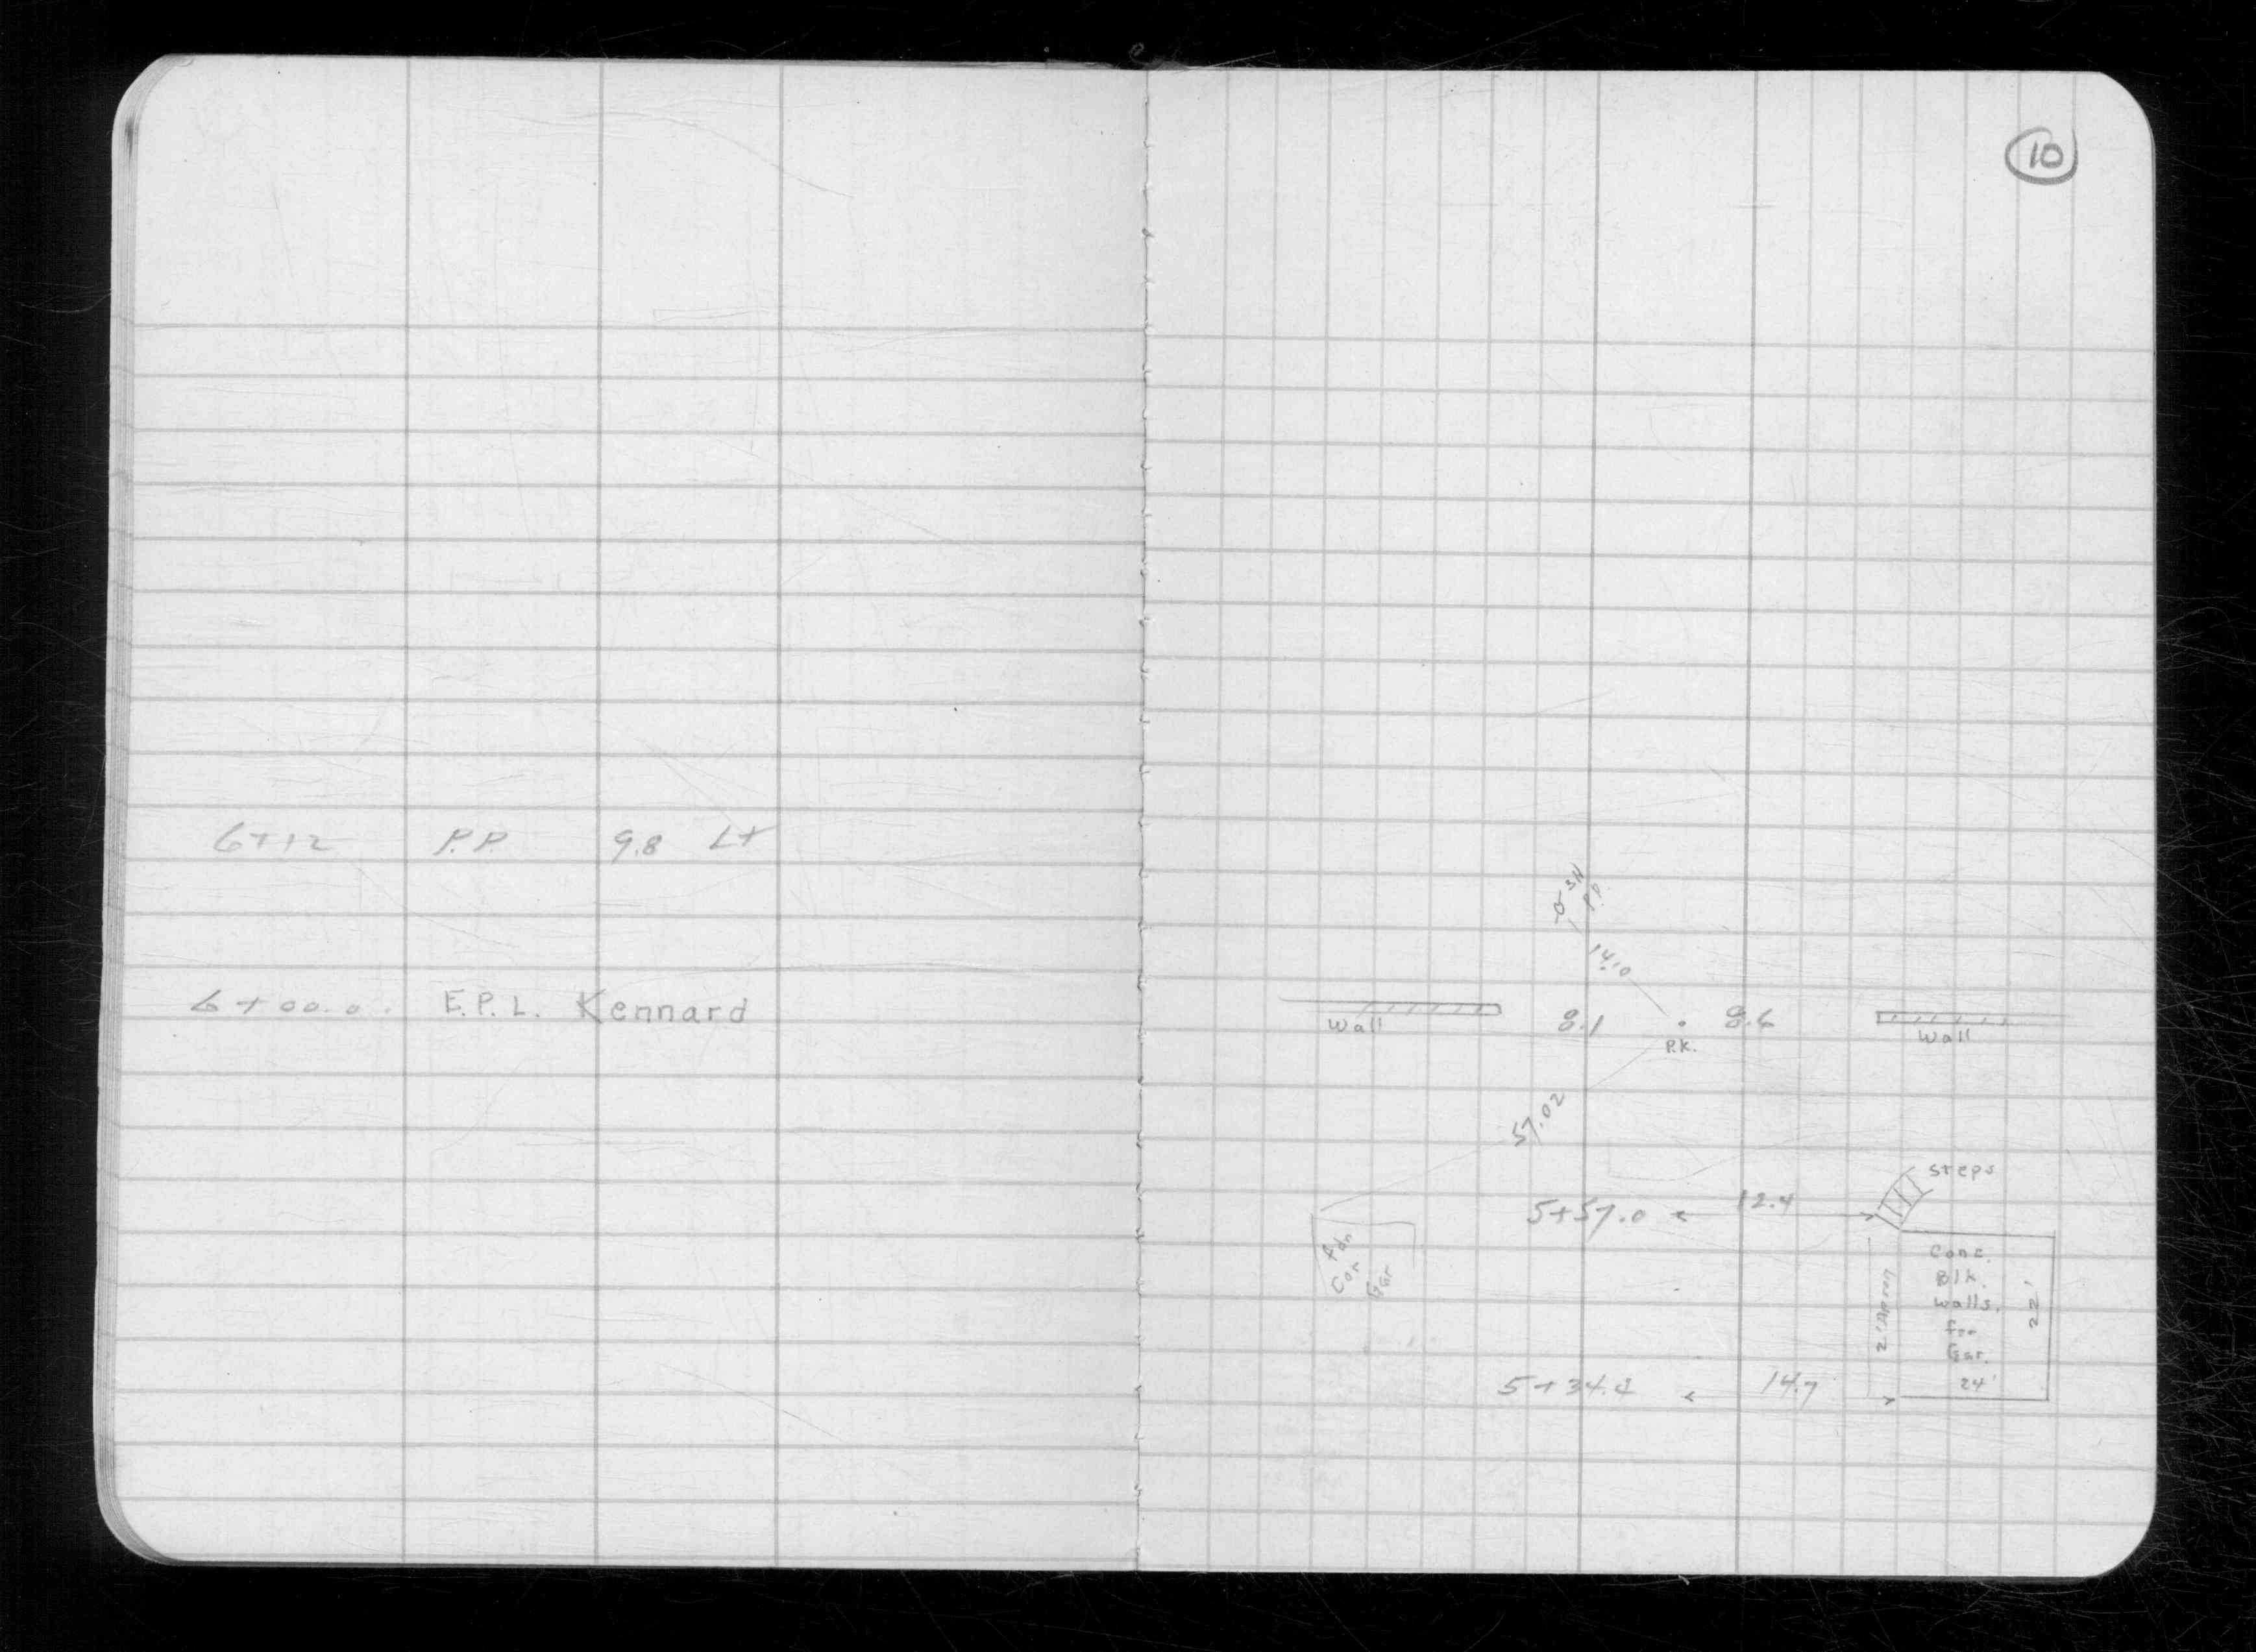 10
6+12 P.P. 9.8 Lt
6+00.0. E.P.L. Kennard
3H
P.P.
14.0
Wall 8.1 8.6 Wall
P.K.
57.02
steps
5+57.0 12.4
fdn
Cor
Gar
2' Apron
Conc.
Blk.
walls.
for
Gar.
24'
22'
5+34. 14.7